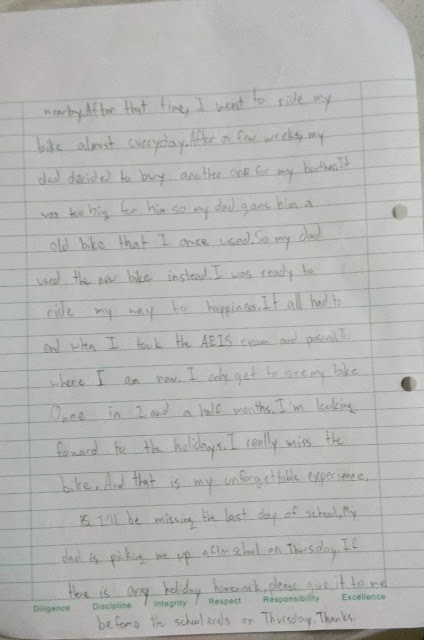 nearby.After that time, I went to ride my
bike almost everyday.After a few weeks, my
dad decided to buy another one for my brother.It
was too big for him so my dad gave him a
old bike that I once used.So my dad
used the new bike instead.I was ready to
ride my way to happiness.It all had to
end when I took the AEIS exam and
where I am now. I only get to see my bike
Once in 2 and a half months.I'm looking
foward to the holidays.I really miss the
bike.And that is my unforgettable experience.
I'll be missing the last day of school,My
dad is picking me up after school on Thursday.If
there is any holiday homework,please give it to me
Diligence Discipline Integrity Respect Responsibility Excellence
before the school ends on Thursday.Thanks.